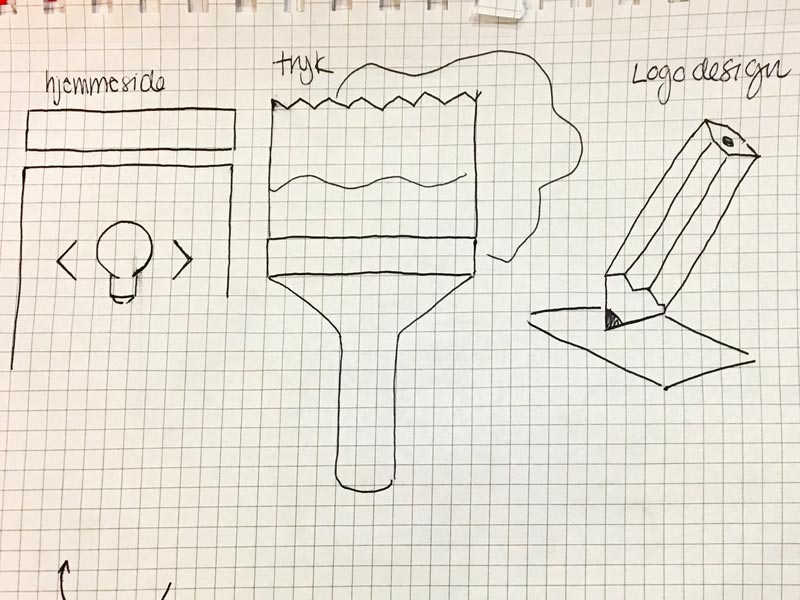 hjemmeside
tryk
Logo design